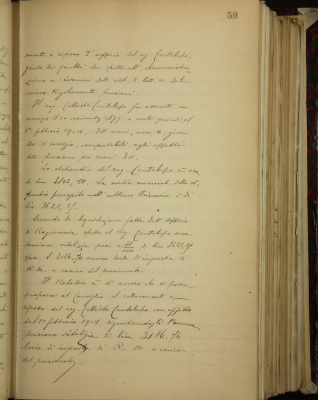 59
mento a riposo d'ufficio del sig. Cantalupo,
giusta la facoltà che spetta all'Amministra-
zione a termini dell'art. 2 lett. a del
nuovo Regolamento pensioni.
Il sig. Callisto Cantalupo fu assunto in
servizio il 10 novembre 1877 e conta quindi al
1º febbraio 1904 anni mesi 2 giorni
20 di servizio, computabili agli effetti
della pensione per anni
Lo stipendio del sig. Cantalupo è
di lire La media annuale dello sti-
pendio percepito nell'ultimo è di
lire 3621,
Secondo la liquidazione fatta dall'Ufficio
di Ragioneria spetta al Sig. Cantalupo una
pensione vitalizia pari a di lire 3621,
cioè £ 3186,76 annue lorde d'imposta di
R. M. a carico del pensionato.
Il Relatore è di avviso che si possa
proporre al Consiglio il collocamento a
riposo del sig. Callisto Cantalupo con effetto
dal 1º febbraio 1904, liquidandogli l'annua
pensione vitalizia di lire 3186,76
lorde di imposta di R. M. a carico
del pensionato.